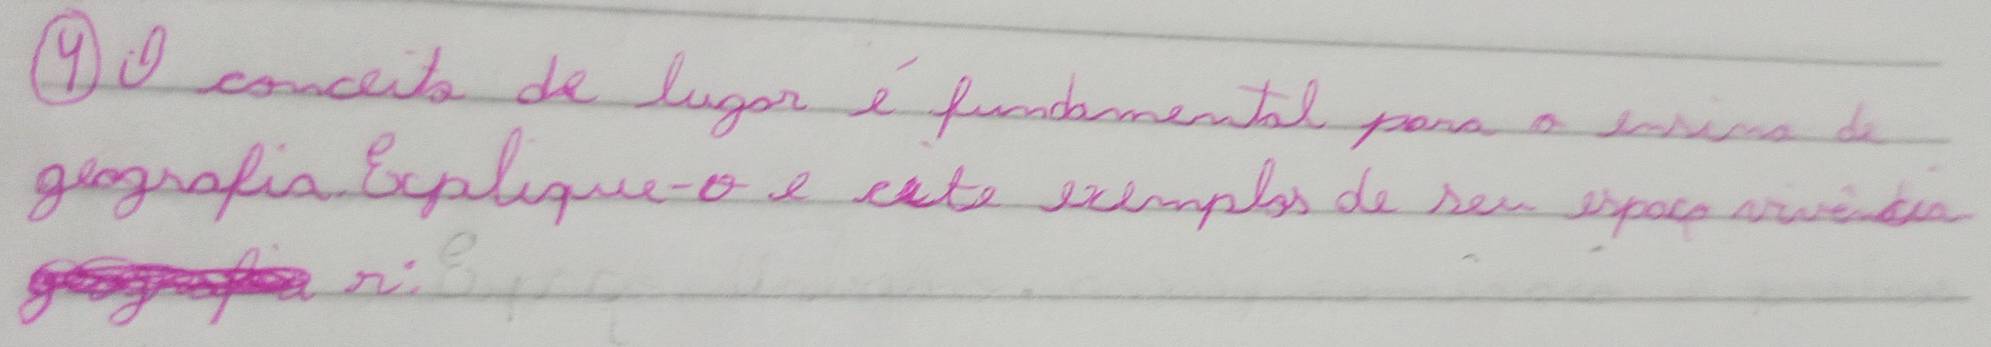 ④ O conceito de lugar é fundamental para o ensino de
geografia. Explique-o e cite exemplos de seu espaço vivência
r: